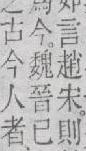 言趙宋則
今。魏晉已
古今人者